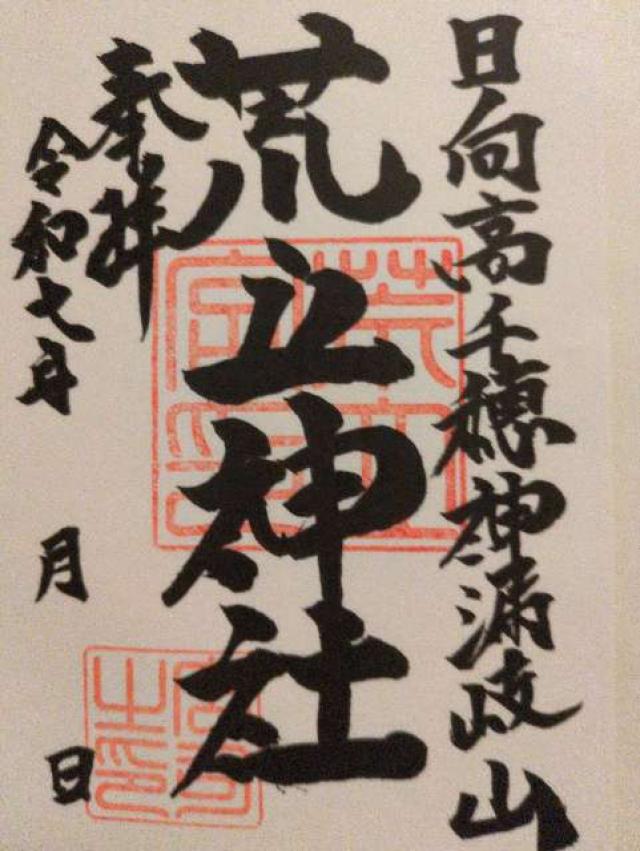 日向高千穂神漏岐山
荒立神社
奉拝
令和七年 月 日